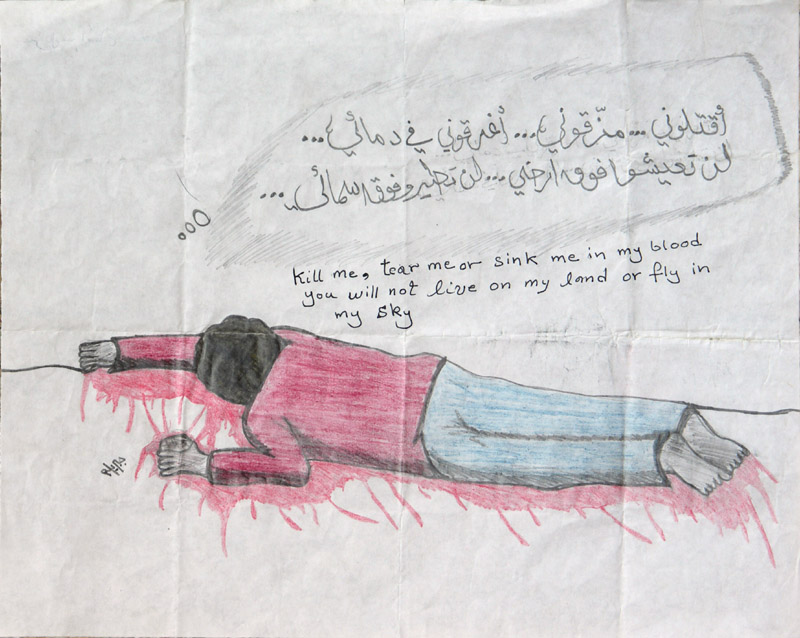 أقتلوني ... مزّقوني ... أغرقوني في دمائي ...
لن تعيشوا فوق ارضي ... لن تطيروا فوق سمائي ...
Kill me, tear me or sink me in my blood
you will not live on my land or fly in
my sky